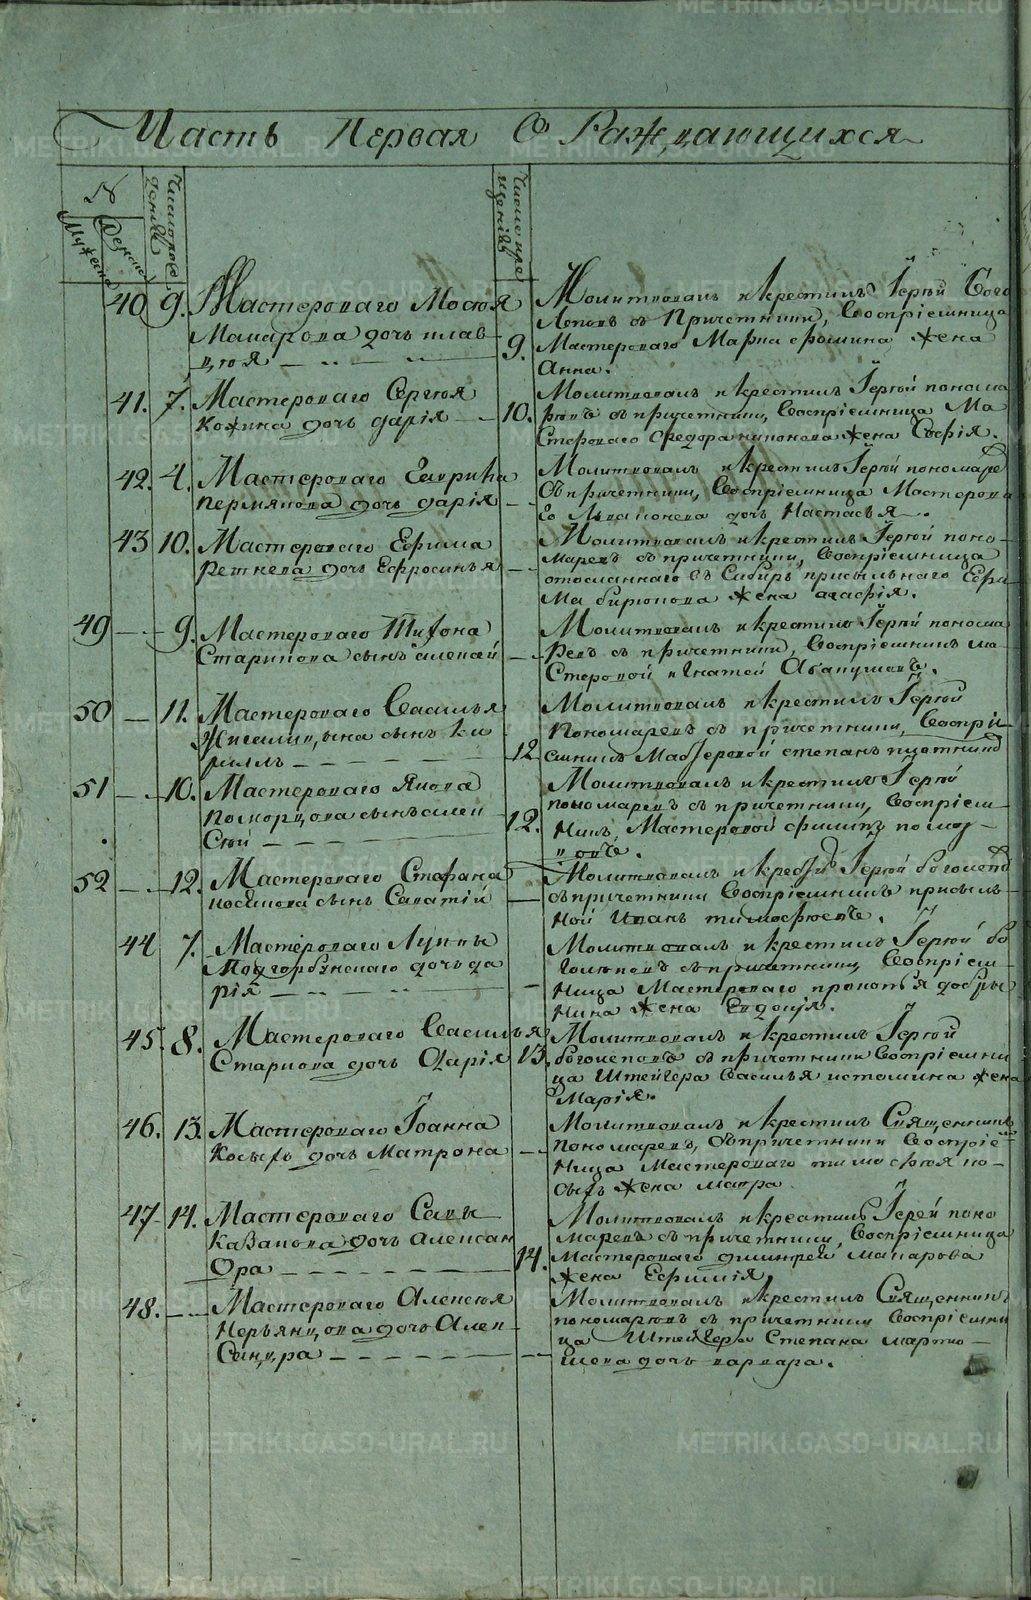 METRIKI.GASO-URAL.RU
Часть Первая О Раждающихся
№
Мужеска
Женска
Число рож
дения
Число кре
щения
40 9. Мастероваго Мосея
Макарова дочь клав
дия
9.
Молитвовалъ и крестилъ Іерей Бого
лепов съ Причетники, Восприемница
Мастероваго Марка Фомина жена
Анна.
41. 7. Мастероваго Сергея
Кожина дочь дария
10.
Молитвовалъ и крестилъ Іерей понома
ревъ съ причетники, Восприемница Ма
Стероваго Федора жена София.
42. 4. Мастероваго
пермякова дочь дария
Молитвовалъ и крестилъ Іерей пономаре
Съ причетники, Восприемница Мастерова
го дочь Настасья.
43 10. Мастероваго Ефима
дочь Ефросинья
Молитвовалъ и крестилъ Іерей поно-
маревъ съ причетники, Восприемница
отосланнаго въ Сибирь присыльнаго Ефи
ма бирюкова жена агафия.
49 9. Мастероваго Тихона
Старикова сынъ алексей
Молитвовалъ и крестилъ Іерей понома
Ревъ съ причетники, Восприемникъ ма
Стеровой Игнатей
50 11. Мастероваго Василья
сынъ Ки
рилъ
12
Молитвовалъ и крестилъ Іерей
Пономаревъ съ причетники, Воспри
емникъ Мастеровой степанъ
51 10. Мастероваго Якова
сынъ алек
Сей
12.
Молитвовалъ и крестилъ Іерей
пономаревъ съ причетники, Восприем
никъ, Мастеровой филипъ
52 12. Мастероваго Стефана
сынъ Саватий
Молитвовалъ и крестил Іерей боголепов
съ причетники Восприемникъ присыль
ной Иванъ тимофеевъ.
44 7. Мастероваго Луппы
Подгорбунскаго дочь да
рия
Молитвовалъ и крестилъ Іерей бо
голеповъ съ причетники, Восприем
ница Мастероваго прокопья добры
нина жена Евдокия.
45. 8. Мастероваго Василья
Старкова дочь Дария
13.
Молитвовалъ и крестилъ Іерей
боголеповъ съ причетники Восприемни
ца Штейгера Василья истомина жена
Мария.
46. 13. Мастероваго Іоанна
Косыхъ дочь Матрона
Молитвовалъ и крестилъ Священникъ
Пономаревъ, Съ причетники Восприе
Ница Мастероваго тимофея ко-
сыхъ жена мавра
47 14. Мастероваго Савы
Казакова дочь Алексан
Дра
14.
Молитвовалъ и крестилъ Іерей поно
маревъ съ причетники, Восприемница
Мастероваго дмитрей макарова
жена Ефимия
48. Мастероваго Алексея
дочь Алек
Сандра
Молитвовалъ и крестилъ Священникъ
пономаревъ съ причетники Восприемни
ца Штейгера Степана мартю
шева дочь варвара.